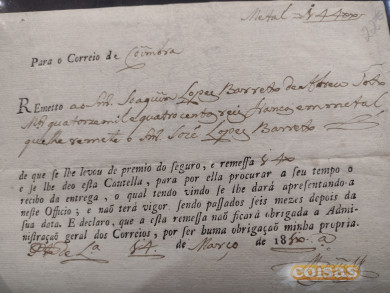 Metal
Para o Correio de Coimbra
REmetto ao Snr. Joaquim Lopez Barreto de Abreu
quatorze mil e quatro cento reis francos em metal
que lhe remete o Snr José Lopez Barreto
de que se lhe levou de premio do seguro, e remessa
e se lhe deo esta Cautella, para por ella procurar a seu tempo o
recibo da entrega, o qual tendo vindo se lhe dará apresentando-a
neste Officio; e não terá vigor sendo passados seis mezes depois da
sua data. E declaro, que a esta remessa não ficará obrigada a Admi-
nistração geral dos Correios, por ser huma obrigaçaõ minha propria.
de Março de 18
coisas